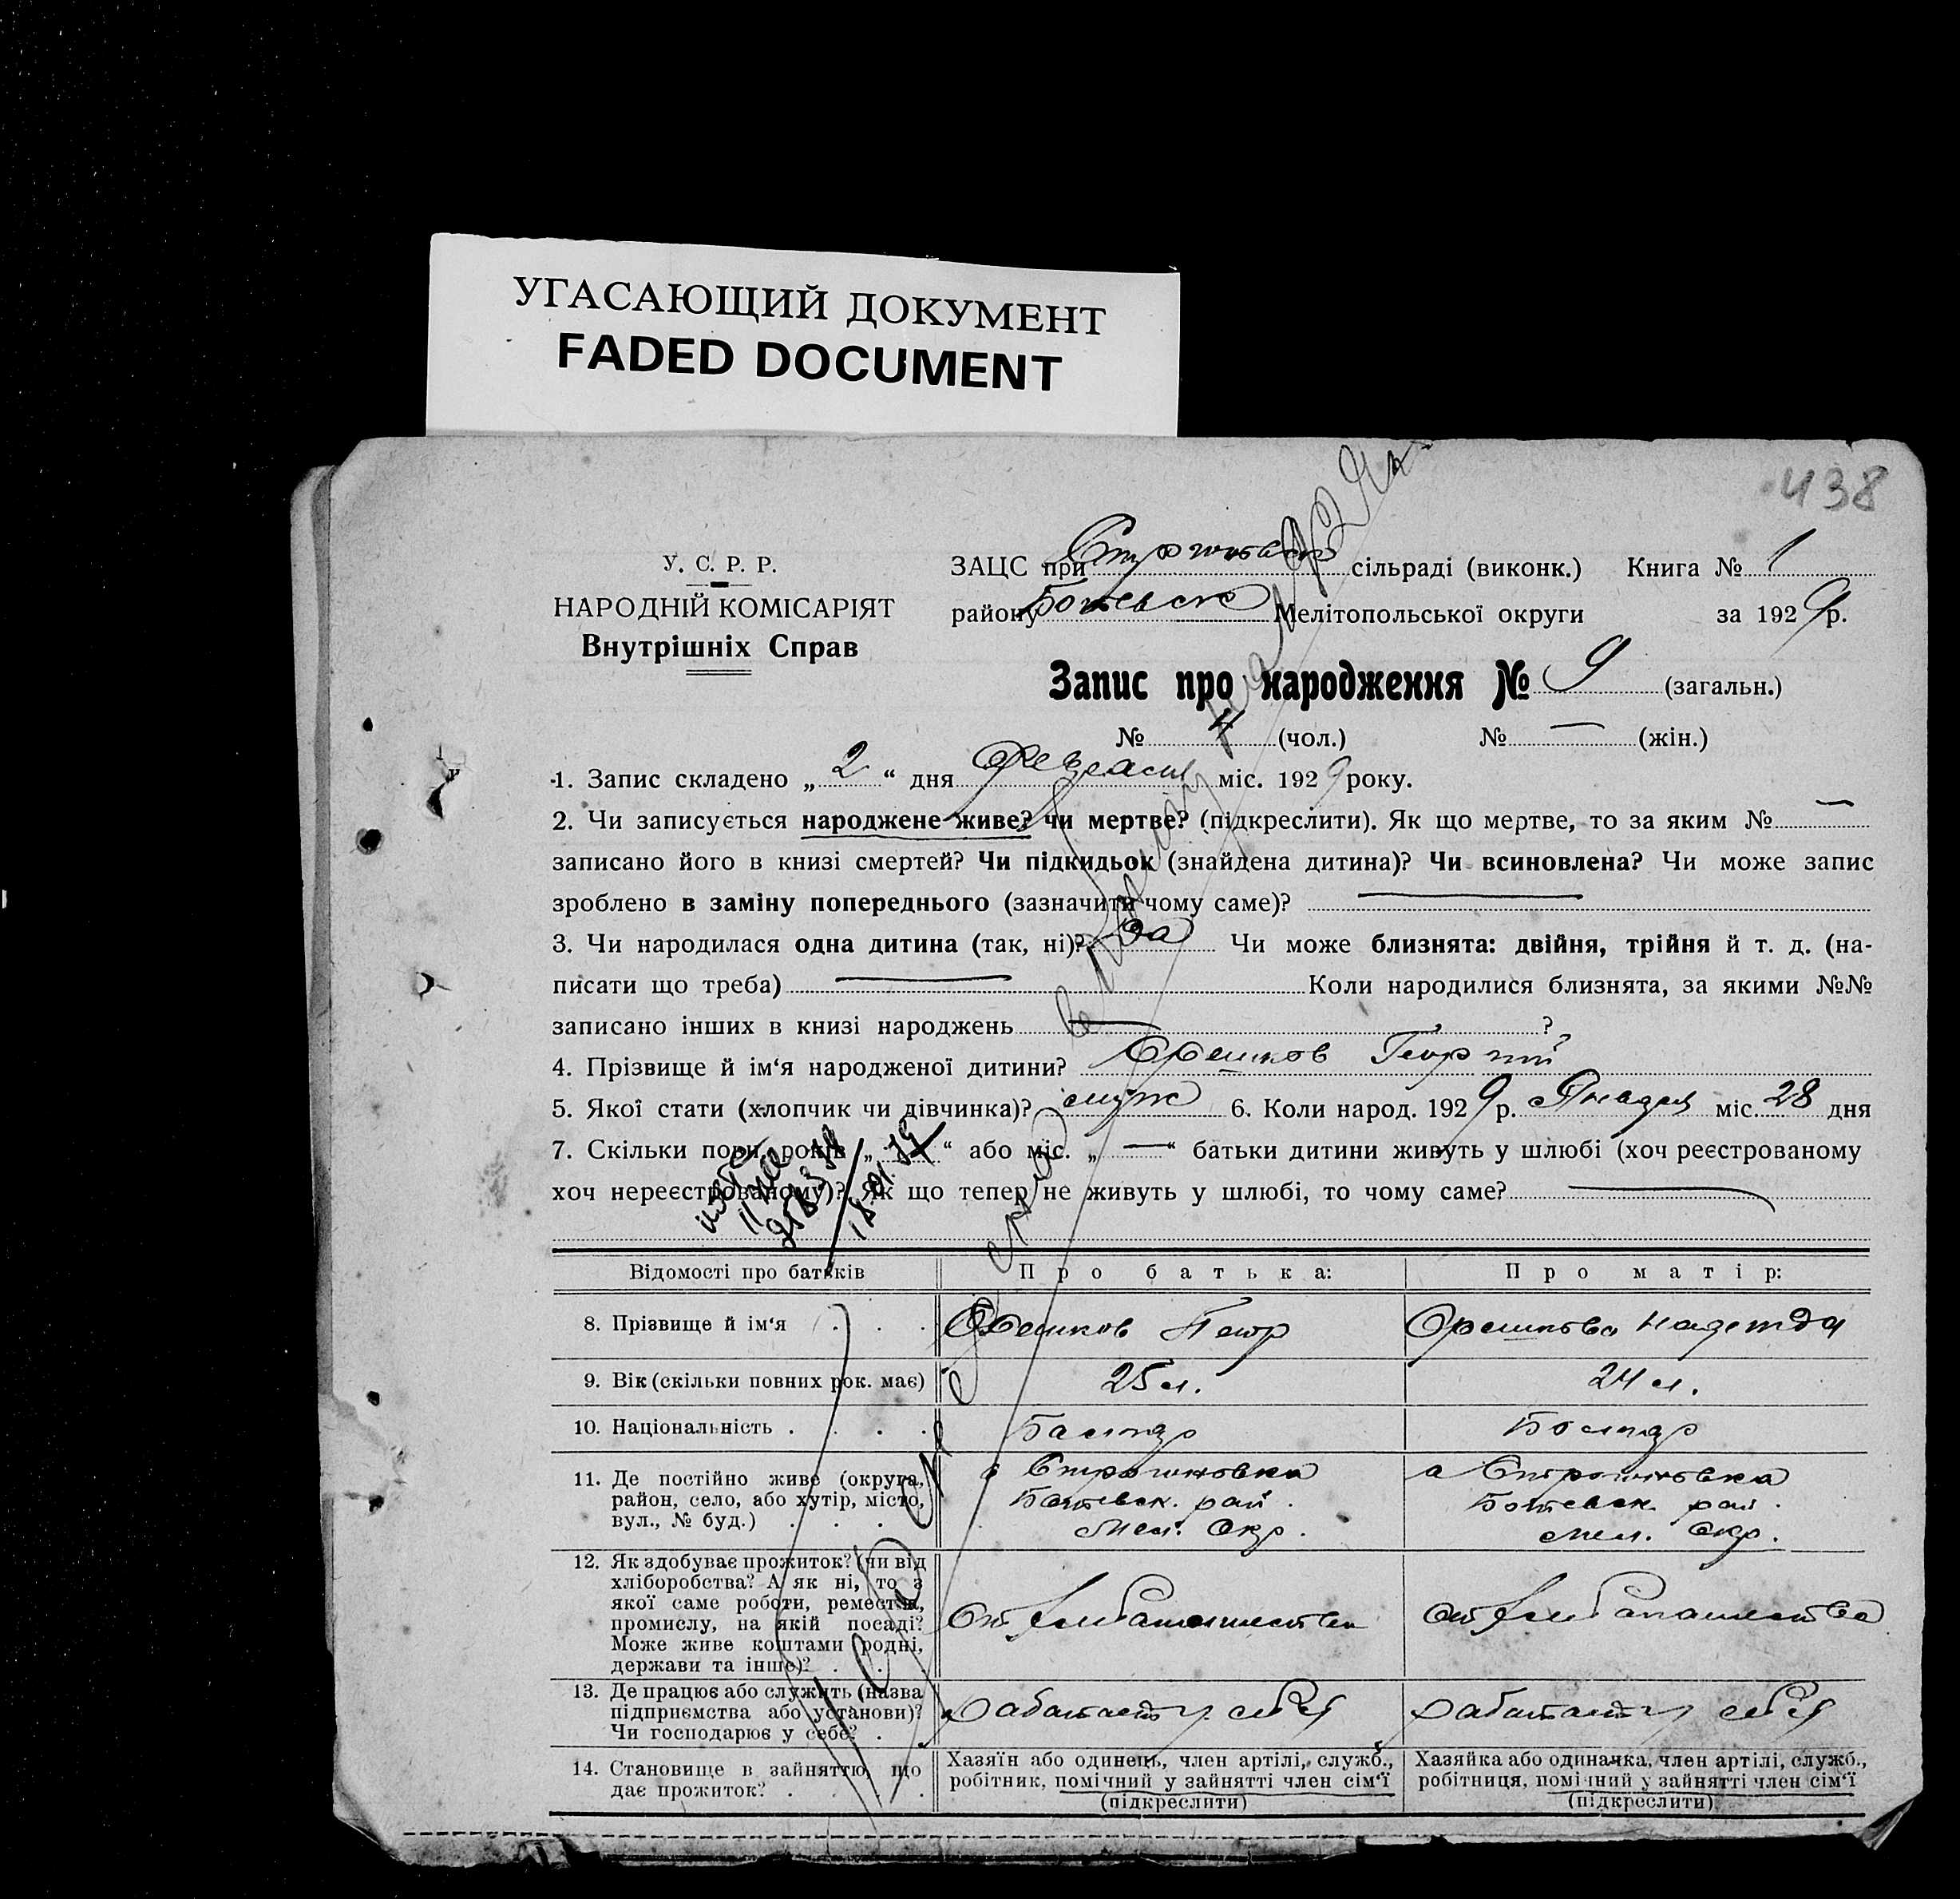 УГАСАЮЩИЙ ДОКУМЕНТ
FADED DOCUMENT
438
У. С. Р. Р.
НАРОДНІЙ КОМІСАРІЯТ
Внутрішніх Справ
ЗАЦС при сільраді (виконк.) Книга № 1
району Ботевск Мелітопольської округи за 1929 р.
Запис про народження № 9 (загальн.)
№ 4 (чол.) № — (жін.)
1. Запис складено „ 2 “ дня Февраля міс. 1929 року.
2. Чи записується народжене живе? чи мертве? (підкреслити). Як що мертве, то за яким № —
записано його в книзі смертей? Чи підкидьок (знайдена дитина)? Чи всиновлена? Чи може запис
зроблено в заміну попереднього (зазначити чому саме)? —
3. Чи народилася одна дитина (так, ні)? да Чи може близнята: двійня, трійня й т. д. (на-
писати що треба) — Коли народилися близнята, за якими №№
записано інших в книзі народжень — ?
4. Прізвище й ім‘я народженої дитини? Орешков Георгий
5. Якої стати (хлопчик чи дівчинка)? муж 6. Коли народ. 1929 р. Января міс. 28 дня
7. Скільки пори, років „ “ або міс. „ — “ батьки дитини живуть у шлюбі (хоч реєстрованому
хоч нереєстрованому)? Як що тепер не живуть у шлюбі, то чому саме? —
Відомості про батьків Про батька: Про матір:
8. Прізвище й ім‘я . . . Орешков Петр Орешкова Надежда
9. Вік (скільки повних рок. має) 25 л. 24 л.
10. Національність . . . . Болгар Болгар
11. Де постійно живе (округа,
район, село, або хутір, місто,
вул., № буд.) . . . .
с Строгановка
Ботевск. рай.
Мел. Окр.
с Строгановка
Ботевск. рай.
Мел. Окр.
12. Як здобуває прожиток? (чи від
хліборобства? А як ні, то з
якої саме роботи, ремества,
промислу, на якій посаді?
Може живе коштами родні,
держави та інше)? . .
От хлебопашества
От хлебопашества
13. Де працює або служить (назва
підприємства або установи)?
Чи господарює у себе? .
Работает у себя
Работает у себя
14. Становище в зайняттю, що
дає прожиток? . . . .
Хазяїн або одинець, член артілі, служб.,
робітник, помічний у зайнятті член сім‘ї
(підкреслити)
Хазяйка або одиначка, член артілі, служб.,
робітниця, помічний у зайнятті член сім‘ї
(підкреслити)